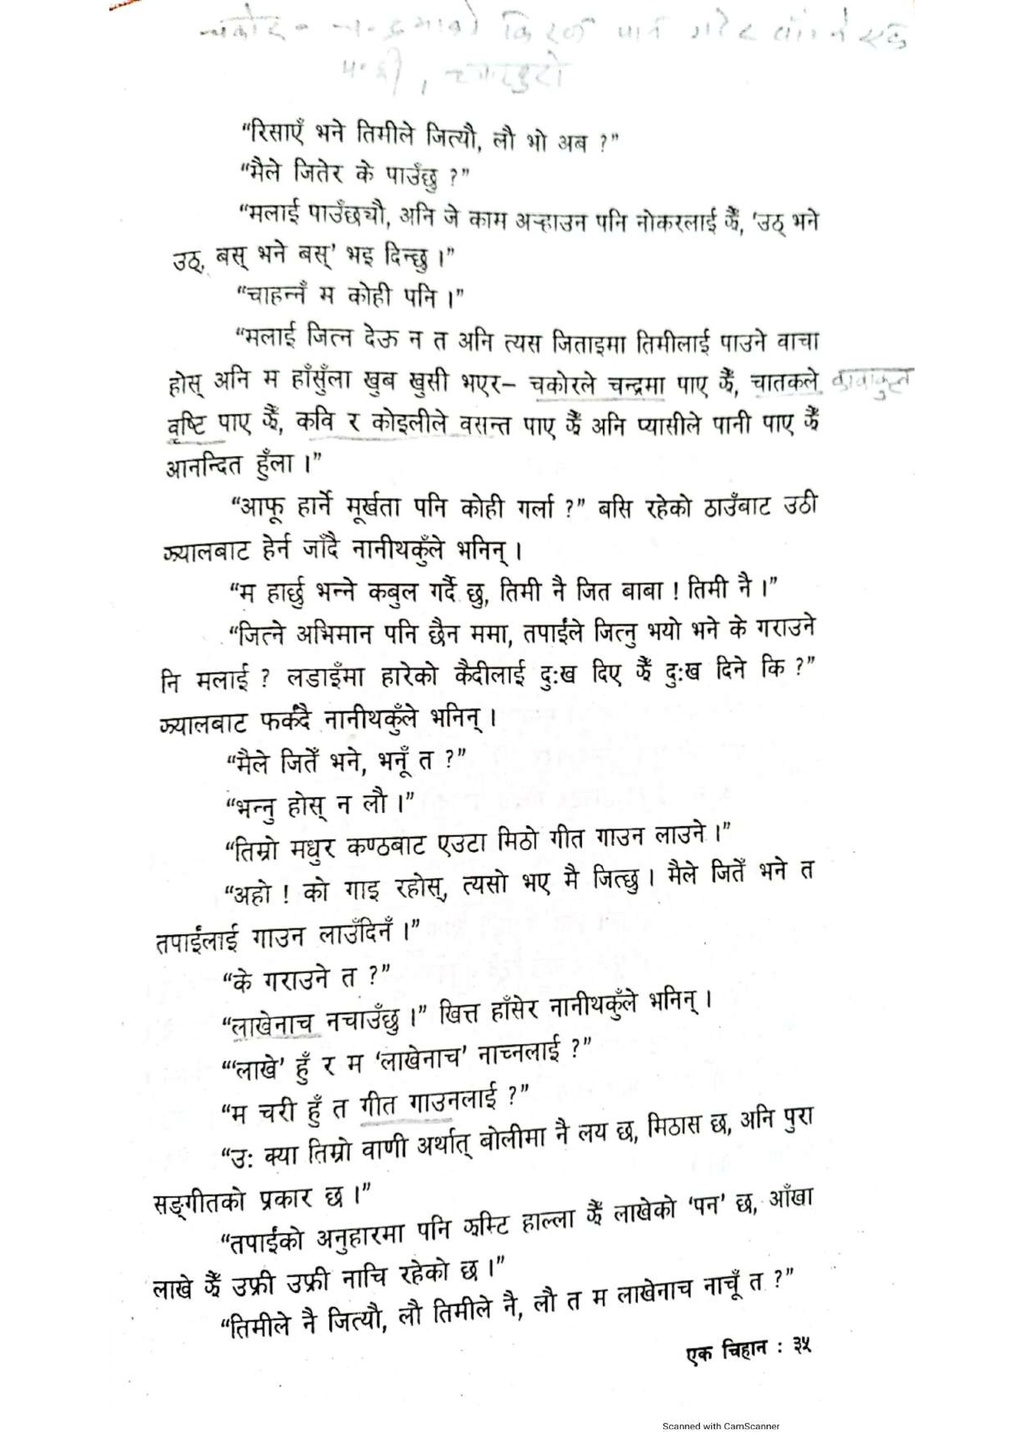 चकोर - चन्द्रमाको किरण पान गरेर बाँच्ने एक
पन्छी,
“रिसाएँ भने तिमीले जित्यौ, लौ भो अब ?”
“मैले जितेर के पाउँछु ?”
“मलाई पाउँछ्यौ, अनि जे काम अऱ्हाउन पनि नोकरलाई झैं, ‘उठ् भने
उठ्, बस् भने बस्’ भइ दिन्छु ।”
“चाहन्नँ म कोही पनि ।”
“मलाई जित्न देऊ न त अनि त्यस जिताइमा तिमीलाई पाउने वाचा
होस् अनि म हाँसुँला खुब खुसी भएर– चकोरले चन्द्रमा पाए झैं, चातकले
वृष्टि पाए झैं, कवि र कोइलीले वसन्त पाए झैं अनि प्यासीले पानी पाए झैं
आनन्दित हुँला ।”
“आफू हार्ने मूर्खता पनि कोही गर्ला ?” बसि रहेको ठाउँबाट उठी
झ्यालबाट हेर्न जाँदै नानीथकुँले भनिन् ।
“म हार्छु भन्ने कबुल गर्दै छु, तिमी नै जित बाबा ! तिमी नै ।”
“जित्ने अभिमान पनि छैन ममा, तपाईंले जित्नु भयो भने के गराउने
नि मलाई ? लडाइँमा हारेको कैदीलाई दुःख दिए झैं दुःख दिने कि ?”
झ्यालबाट फर्कंदै नानीथकुँले भनिन् ।
“मैले जितेँ भने, भनूँ त ?”
“भन्नु होस् न लौ ।”
“तिम्रो मधुर कण्ठबाट एउटा मिठो गीत गाउन लाउने ।”
“अहो ! को गाइ रहोस्, त्यसो भए मै जित्छु । मैले जितेँ भने त
तपाईंलाई गाउन लाउँदिनँ ।”
“के गराउने त ?”
“लाखेनाच नचाउँछु ।” खित्त हाँसेर नानीथकुँले भनिन् ।
“‘लाखे’ हुँ र म ‘लाखेनाच’ नाच्नलाई ?”
“म चरी हुँ त गीत गाउनलाई ?”
“उः क्या तिम्रो वाणी अर्थात् बोलीमा नै लय छ, मिठास छ, अनि पुरा
सङ्गीतको प्रकार छ ।”
“तपाईंको अनुहारमा पनि झम्टि हाल्ला झैं लाखेको ‘पन’ छ, आँखा
लाखे झैं उफ्री उफ्री नाचि रहेको छ ।”
“तिमीले नै जित्यौ, लौ तिमीले नै, लौ त म लाखेनाच नाचूँ त ?”
एक चिहान : ३५
Scanned with CamScanner